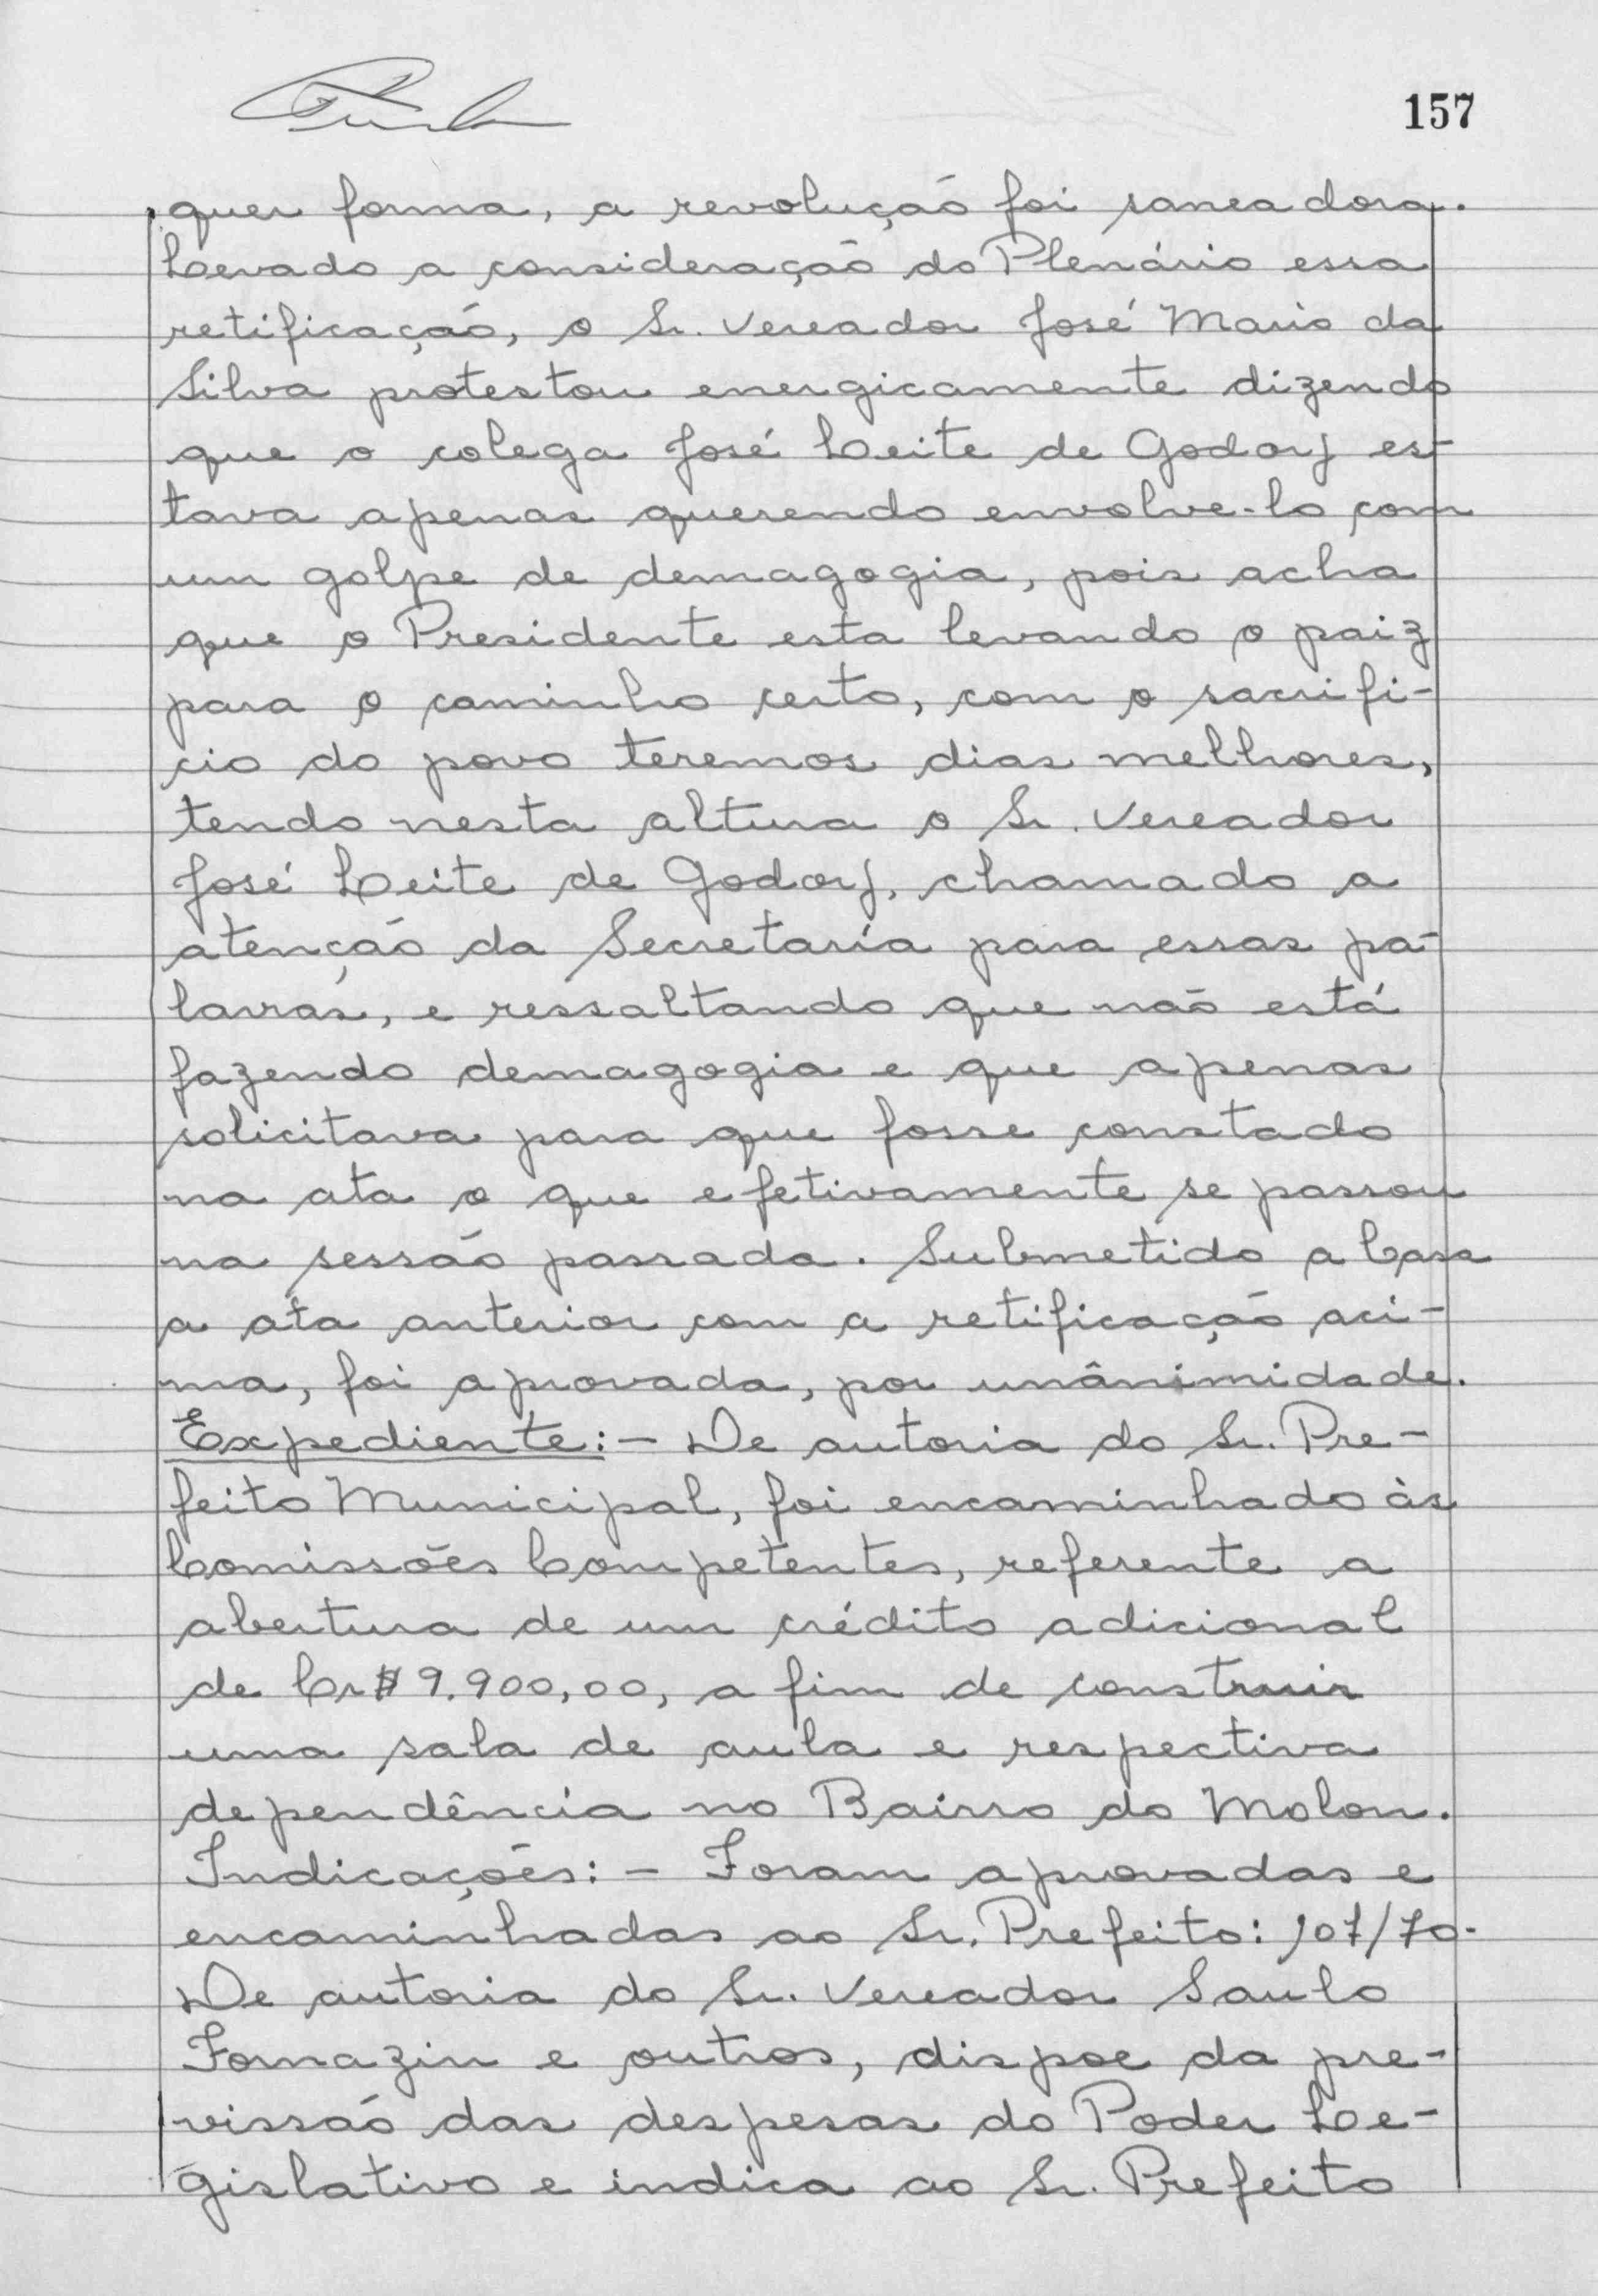 157
quer forma, a revolução foi saneadora.
Levado a consideração do Plenário essa
retificação, o Sr. Vereador José Mario da
Silva protestou energicamente dizendo
que o colega José Leite de Godoy es-
tava apenas querendo envolve-lo com
um golpe de demagogia, pois acha
que o Presidente esta levando o paiz
para o caminho certo, com o sacrifi-
cio do povo teremos dias melhores,
tendo nesta altura o Sr. Vereador
José Leite de Godoy, chamado a
atenção da Secretaría para essas pa-
lavras, e ressaltando que não está
fazendo demagogia e que apenas
solicitava para que fosse constado
na ata o que efetivamente se passou
na sessão passada. Submetido a Casa
a ata anterior com a retificação aci-
ma, foi aprovada, por unânimidade.
Expediente:- De autoria do Sr. Pre-
feito Municipal, foi encaminhado às
Comissões Competentes, referente a
abertura de um crédito adicional
de Cr$ 9.900,00, a fim de construir
uma sala de aula e respectiva
dependência no Bairro do Molon.
Indicações:- Foram aprovadas e
encaminhadas ao Sr. Prefeito: 107/70-
De autoria do Sr. Vereador Saulo
Fornazin e outros, dispoe da pre-
vissão das despesas do Poder Le-
gislativo e indica ao Sr. Prefeito